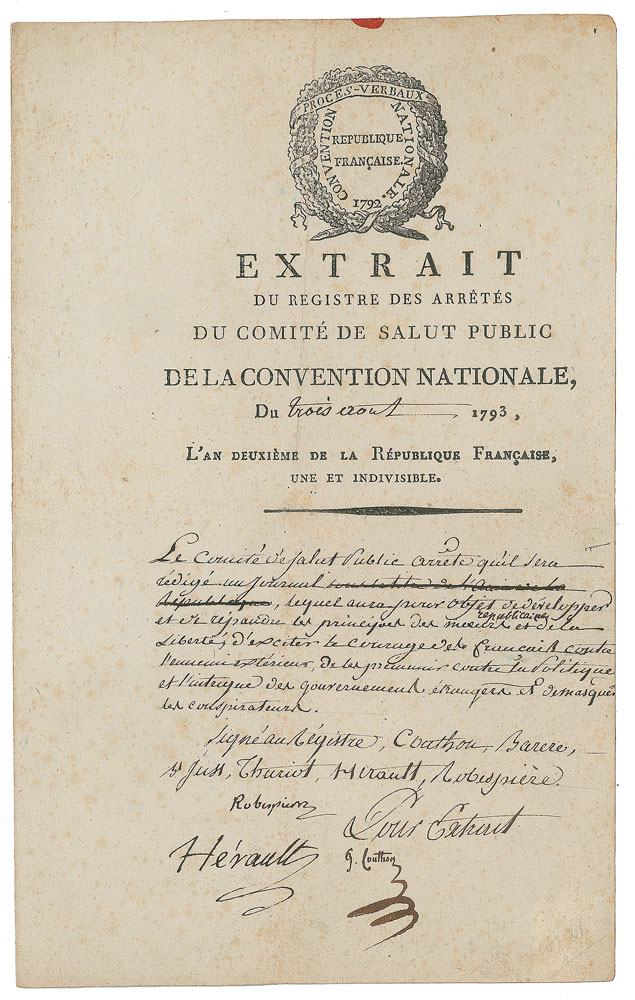 PROCES-VERBAUX
CONVENTION NATIONALE.
REPUBLIQUE
FRANÇAISE.
1792
EXTRAIT
DU REGISTRE DES ARRÊTÉS
DU COMITÉ DE SALUT PUBLIC
DE LA CONVENTION NATIONALE,
Du trois aout 1793,
L'AN DEUXIÈME DE LA RÉPUBLIQUE FRANÇAISE,
UNE ET INDIVISIBLE.
Le Comité de Salut Public arrête qu'il sera
rédigé un Journal sous le titre de
République, lequel aura pour objet de développer
républicaines
et de repandre les principes des moeurs et de la
Liberté, d'exciter le courage des français contre
l'ennemi extérieur, de les prémunir contre la Politique
et l'intrigue des gouvernements étrangers et démasquer
les conspirateurs.
Signé au Régistre, Couthon, Barere,
St Just, Thuriot, Hérault, Robespierre.
Robespierre
Pour Extrait
Hérault
G. Couthon